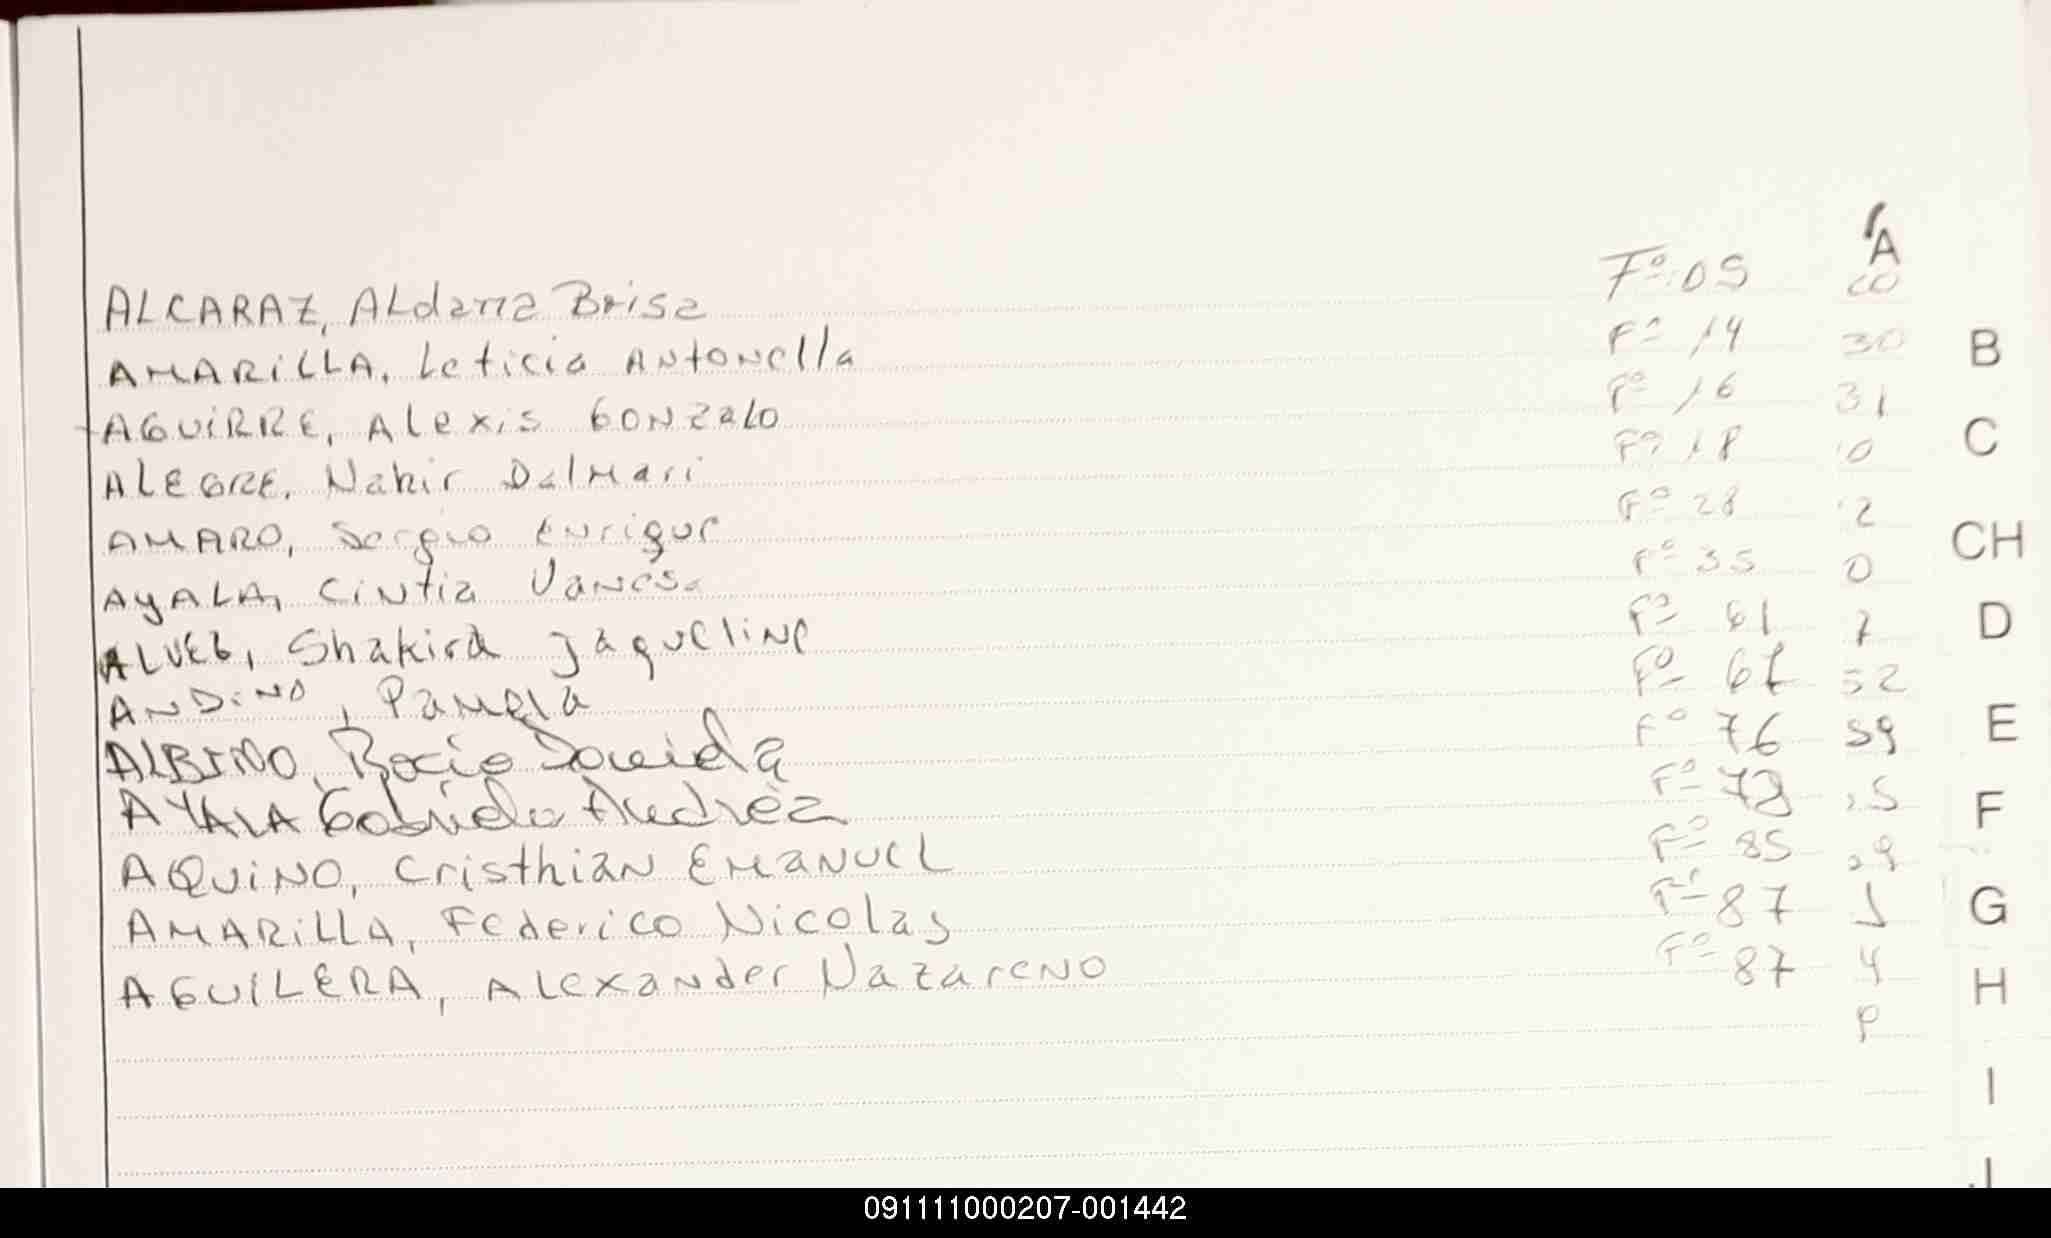 A
ALCARAZ, Aldana Brisa Fº 05
AMARILLA, Leticia Antonella Fº 14 30
AGUIRRE, Alexis Gonzalo Fº 16 31
ALEGRE, Nahir Dalmari Fº 18 0
AMARO, Sergio Enrique Fº 28 2
AYALA, Cintia Vanesa Fº 35 0
ALVEZ, Shakira Jaqueline Fº 61 7
ANDINO, Pamela Fº 52
ALBINO, Rocío Fº 76 59
AYALA Fº 78
AQUINO, Cristhian Emanuel Fº 85 29
AMARILLA, Federico Nicolas Fº 87
AGUILERA, Alexander Nazareno Fº 87 4
B
C
CH
D
E
F
G
H
I
J
091111000207-001442